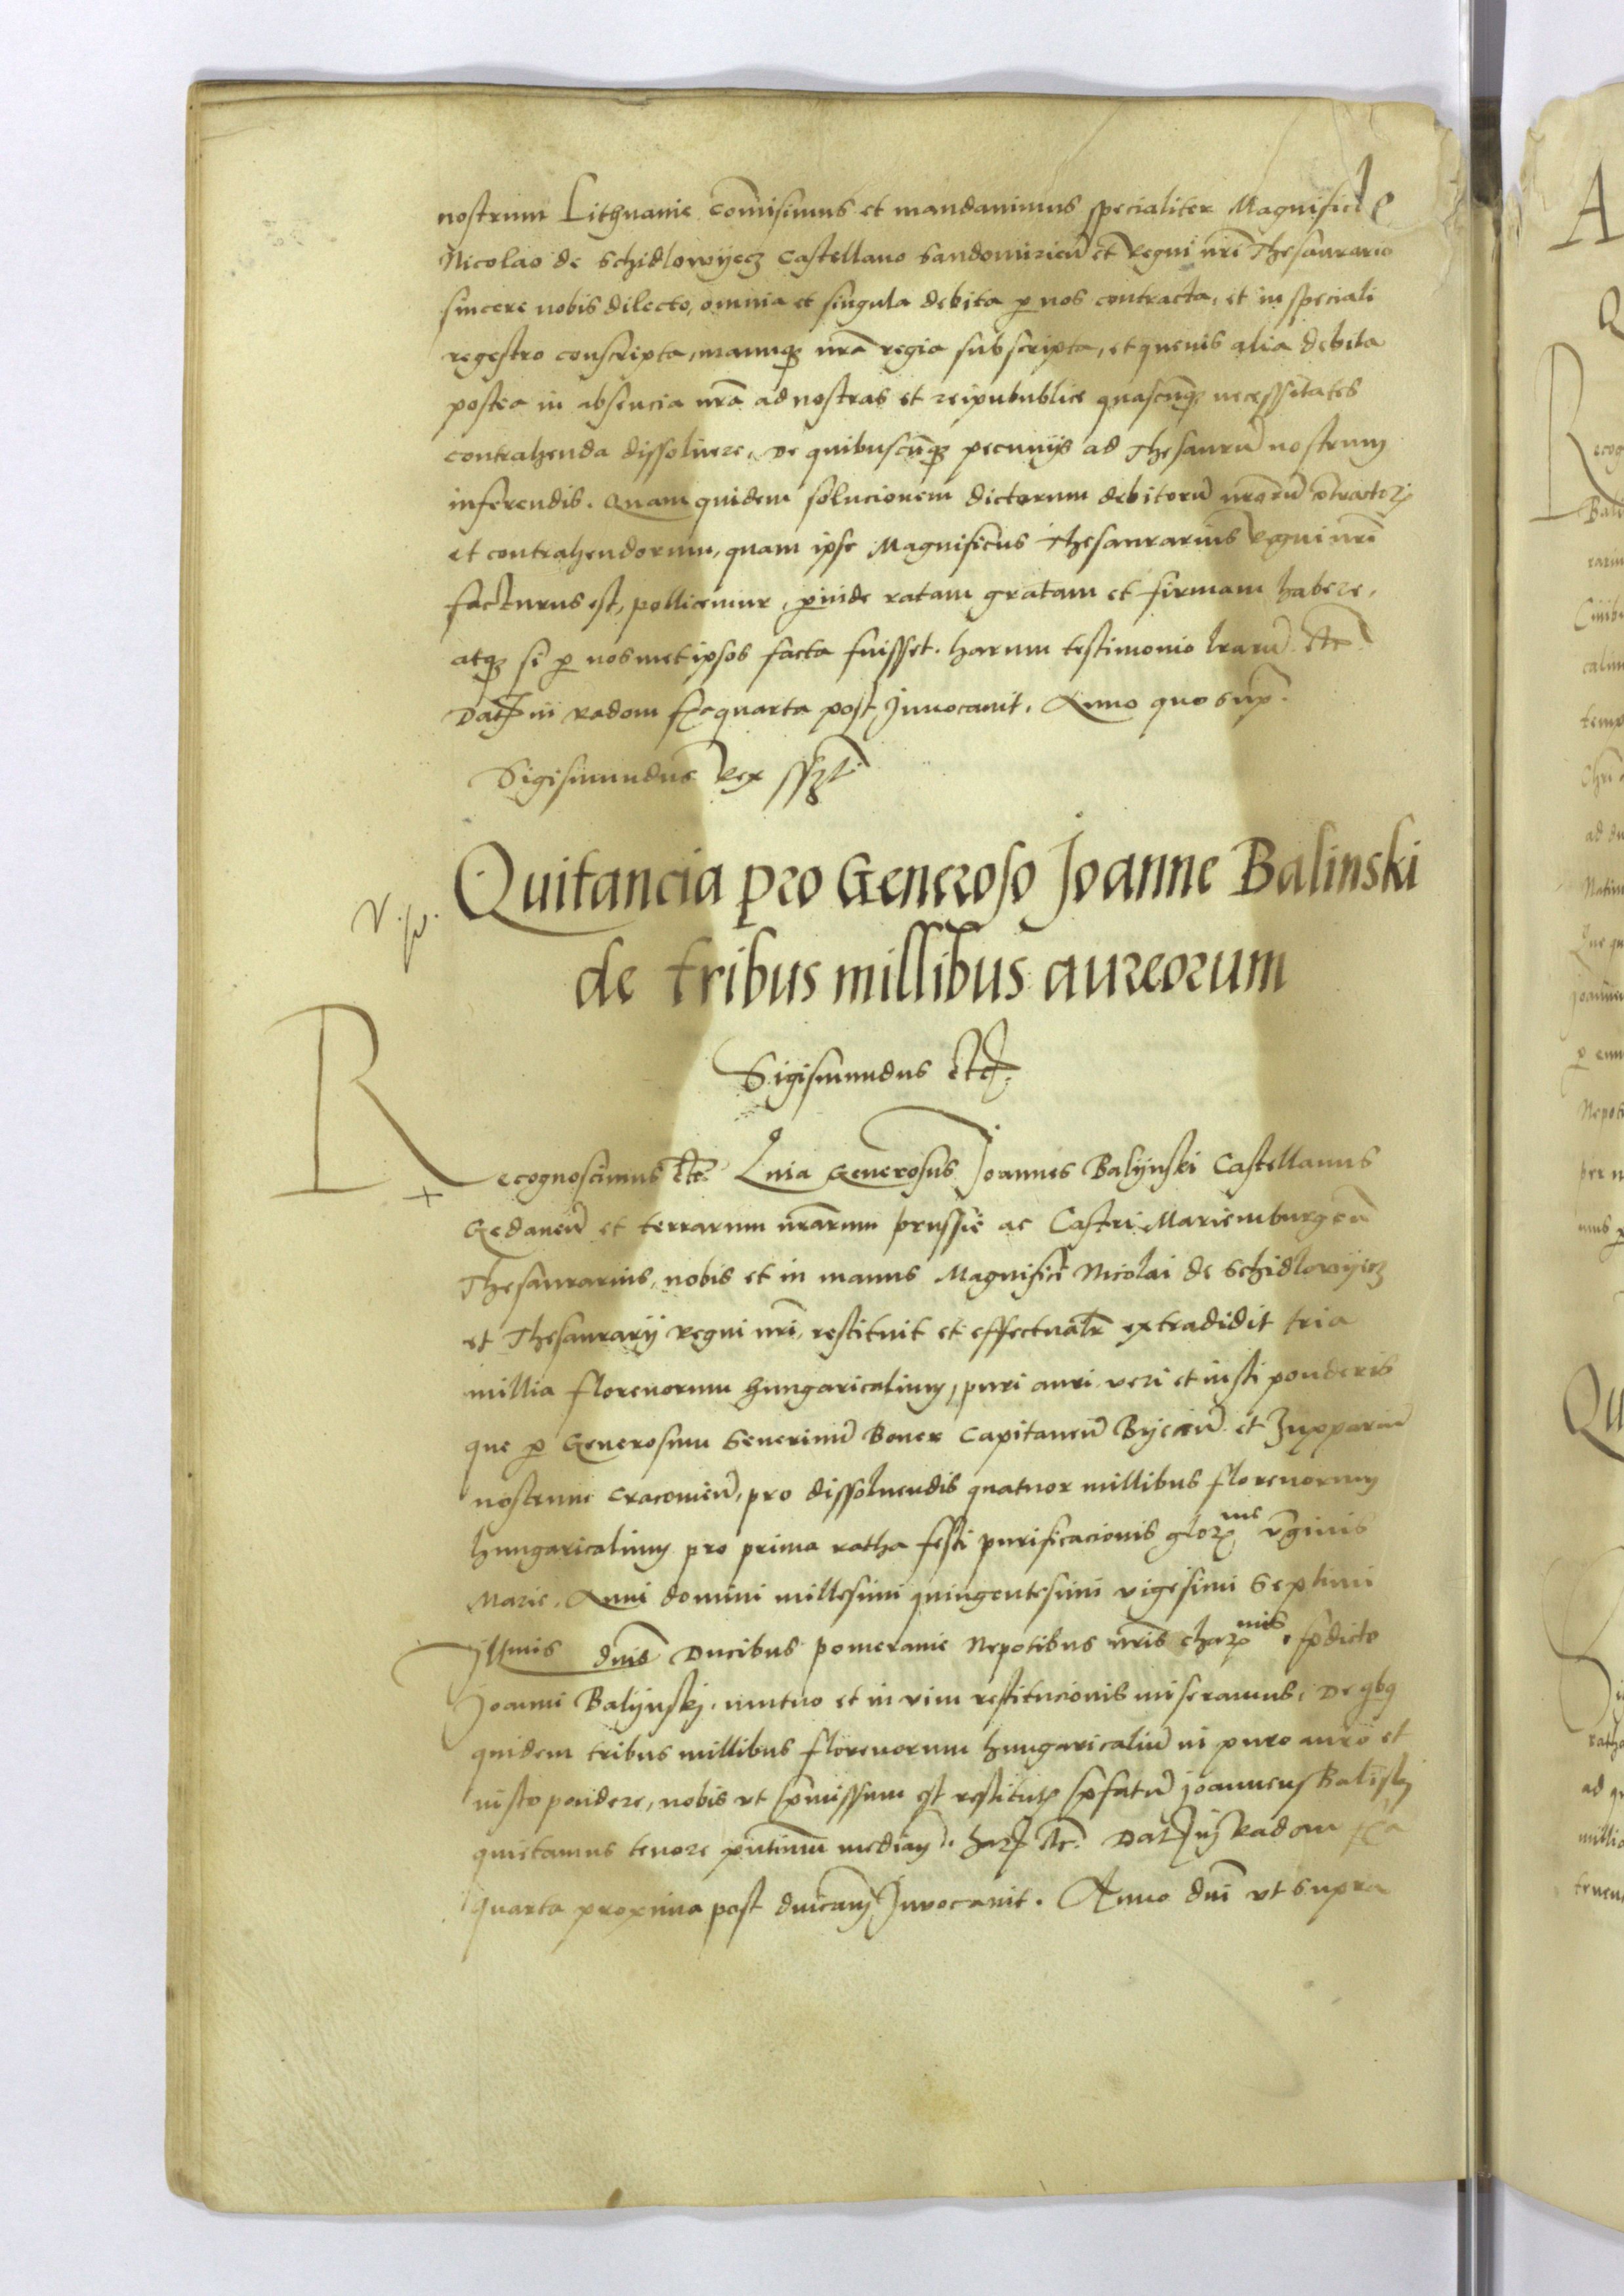 nostrum Lithuanie com̄isimus et mandauimus specialiter Magnifico
Nicolao de Schidlowyecz Castellano Sandomirien̄ et Regni nr̄i Thesaurario
sincere nobis dilecto, omnia et singula debita ꝑ nos contracta, et in speciali
regestro conscripta, manuqꝫ nr̄a regia subscripta, et queuis alia debita
postea in absencia nr̄a ad nostras et reipubublice quascūqꝫ necessitates
contrahenda dissoluere, de quibuscūqꝫ pecunijs ad Thesaurū nostrum
inferendis. Quam quidem solucionem dictorum debitorū nr̄orū ꝯtractoꝝ
et contrahendorum, quam ipse Magnificus Thesaurarius Regni nr̄i
facturus est, pollicemur, ꝑinde ratam gratam et firmam habere,
atqꝫ si ꝑ nosmetipsos facta fuisset. harum testimonio lr̄arū etc̄
Datꝭ in Radom fr̄a quarta post Inuocauit. Anno quo sup̄.
Sigismundus Rex sszt
Quitancia pro Generoso Joanne Balinski
de tribus millibus aureorum
Sigismundus etcꝭ.
Recognoscimus etc̄ Quia Generosus Joannes Balijnski Castellanus
Gedanen̄ et terrarum nr̄arum prussie ac Castri Mariemburgen̄
Thesaurarius, nobis et in manus Magnifici Nicolai de Schidlowijecz
et Thesaurarij Regni nr̄i, restituit et effectualr̄ extradidit tria
millia florenorum hungaricalium, puri auri veri et iusti ponderis
que ꝑ Generosum Seuerinū Boner Capitaneū Byecien̄ et Zupparium
nostrum Cracouien̄, pro dissoluendis quatuor millibus florenorum
hungaricalium pro prima ratha festi purificacionis gloꝝme v̄ginis
Marie, Anni domini millesimi quingentesimi vigesimi Septimi
Jllmis dn̄is Ducibus pomeranie Nepotibus nr̄is chaꝝmis, p̄dicto
Joanni Balijnskj, mutuo et in vim restitucionis miseramus. De qbꝫ
quidem tribus millibus florenorum hungaricaliū in puro auro et
iusto pondere, nobis vt p̄missum est restitutꝭ p̄fatū Joannem Balijskj
quietamus tenore p̄ntium median̄. harꝭ etc̄. Datꝭ in Radom fr̄a
quarta proxima post dn̄icam Inuocauit. Anno dn̄i vt supra